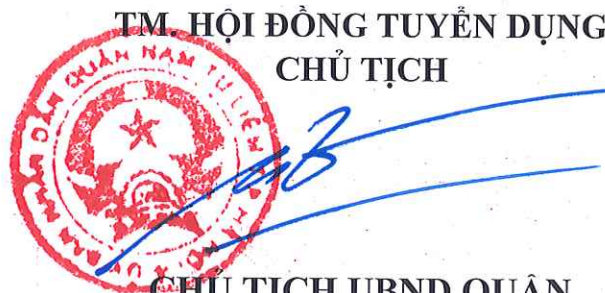 TM. HỘI ĐỒNG TUYỂN DỤNG
CHỦ TỊCH
ỦY BAN NHÂN DÂN QUẬN NAM TỪ LIÊM
CHỦ TỊCH UBND QUẬN